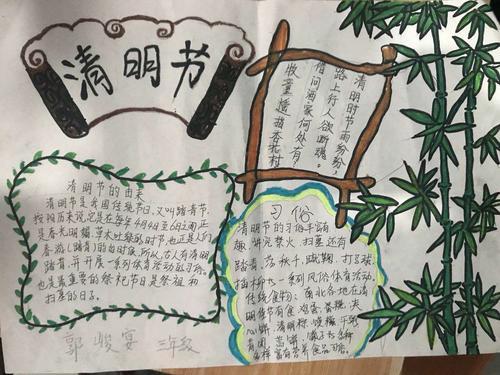 清明节
清明时节雨纷纷，
路上行人欲断魂。
借问酒家何处有，
牧童遥指杏花村
清明节的由来
清明节是我国传统节日，又叫踏青节，
按阳历来说，它是在每年4月4日至6日间，正
是春光明媚草木吐绿的时节，也正是人们
春游（踏青）的时候，所以，古人有清明
踏青，并开展一系列体育活动的习俗。
也是最重要的祭祀节日是祭祖和
扫墓的日子。
习俗
清明节的习俗丰富有
趣，讲究禁火、扫墓还有
踏青、荡秋千、蹴鞠、打马球、
插柳等一系列风俗体育活动。
传统食物：南北各地在清
明佳节有食鸡蛋、蛋糕、夹
心饼、清明粽、馍糍、干粥
等多种
多样富有营养食品习俗。
郭 宴 三年级